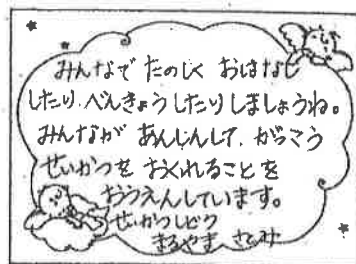 みんなで たのしく おはなし
したり、べんきょうしたりしましょうね。
みんなが あんしんして、がっこう
せいかつを おくれることを
おうえんしています。
せいかつしどう
まるやま さとみ